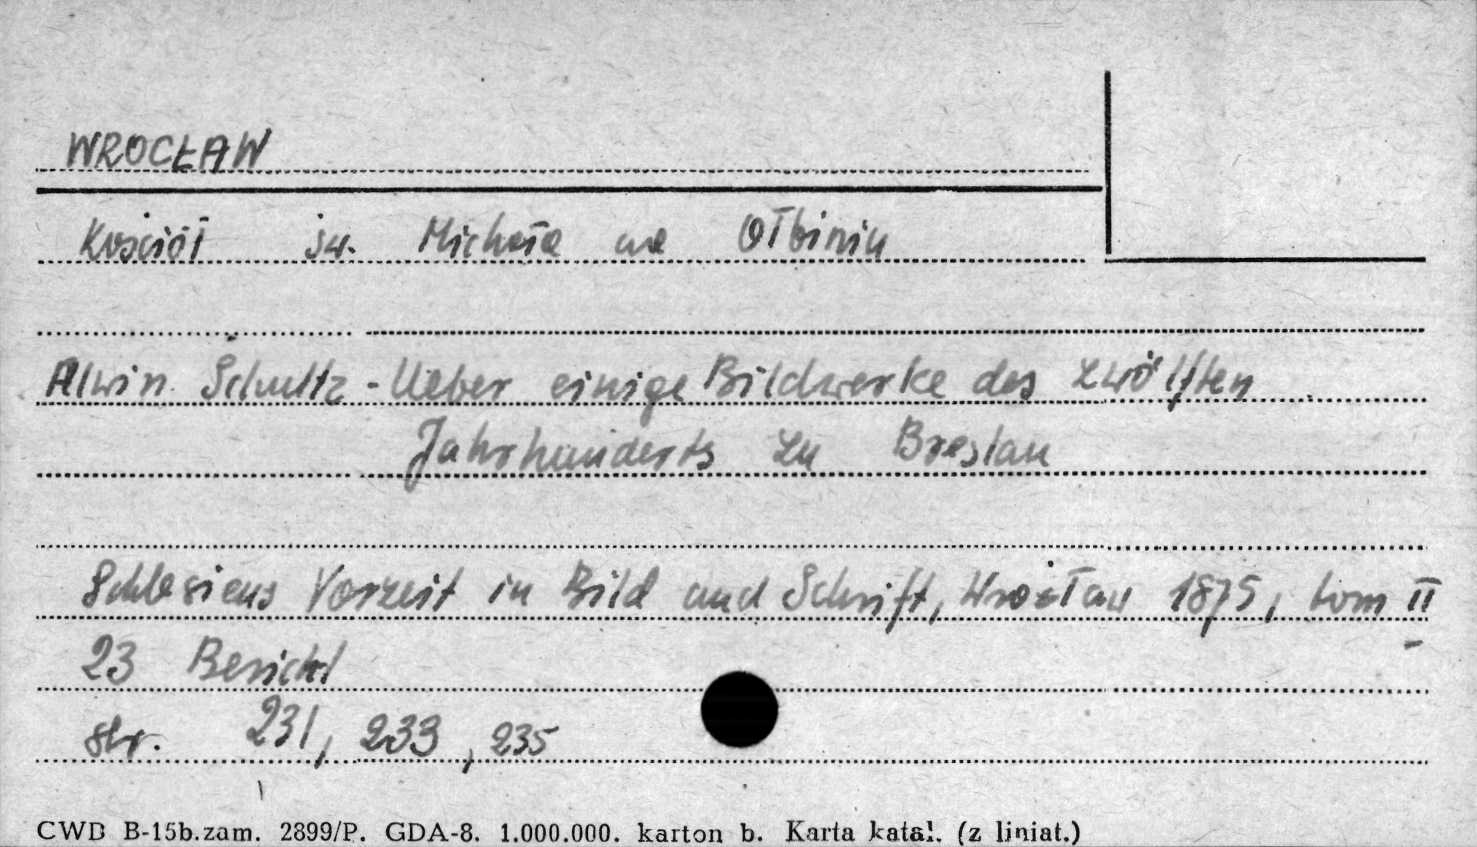 WROCŁAW
Kościół św. Michała na Ołbiniu
Alwin Schultz - Ueber einige Bildwerke des zwölften
Jahrhunderts zu Breslau
Schlesiens Vorzeit in Bild und Schrift, Wrocław 1875, tom II
23 Bericht
str. 231, 233, 235
CWD B-15b.zam. 2899/P. GDA-8. 1.000.000. karton b. Karta katal. (z liniat.)